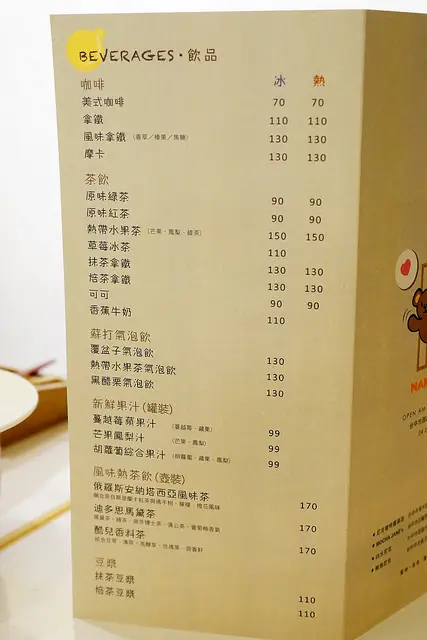 BEVERAGES・飲品
咖啡 冰 熱
美式咖啡 70 70
拿鐵 110 110
風味拿鐵 (香草／榛果／焦糖) 130 130
摩卡 130 130
茶飲
原味綠茶 90 90
原味紅茶 90 90
熱帶水果茶 (芒果、鳳梨、綠茶) 150 150
草莓冰茶 110
抹茶拿鐵 130 130
焙茶拿鐵 130 130
可可 90 90
香蕉牛奶 110
蘇打氣泡飲
覆盆子氣泡飲 130
熱帶水果茶氣泡飲 130
黑醋栗氣泡飲 130
新鮮果汁(罐裝)
蔓越莓蘋果汁 (蔓越莓、蘋果) 99
芒果鳳梨汁 (芒果、鳳梨) 99
胡蘿蔔綜合果汁 (胡蘿蔔、蘋果、鳳梨) 99
風味熱茶飲(壺裝)
俄羅斯安納塔西亞風味茶 170
迪多思馬黛茶 170
酷兒香料茶 170
豆漿
抹茶豆漿 110
焙茶豆漿 110
OPEN AM